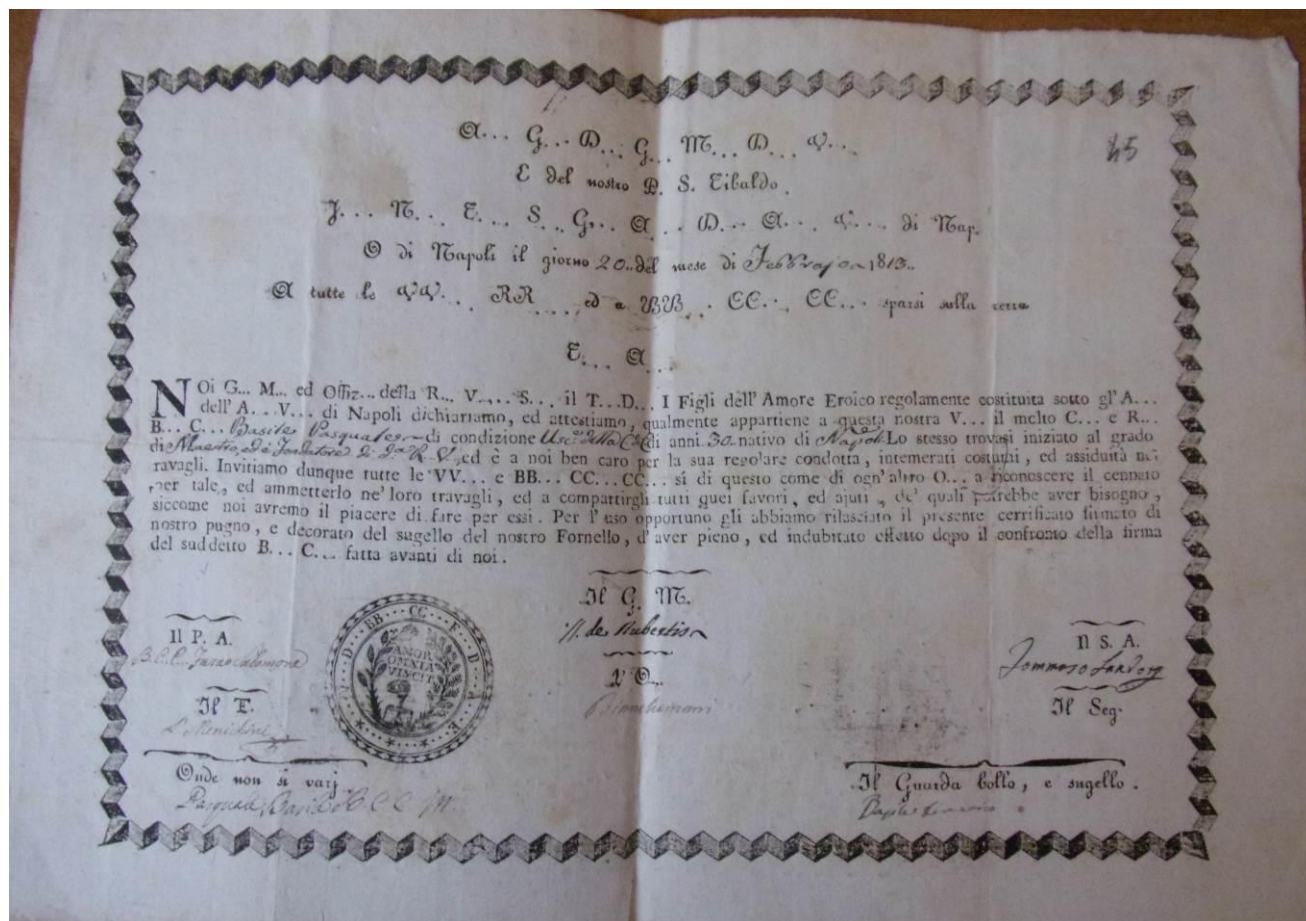 A... G... D... G... M... D... V...
E del nostro P. S. Tibaldo.
J... N... E... S... G... A... D... A... V... di Nap.
O di Napoli il giorno 20.. del mese di 1813..
A tutte le VV... RR... ed a BB... CC... CC... sparsi sulla terra
E... A...
NOi G... M... ed Offiz... della R... V... S... il T... D... I Figli dell' Amore Eroico regolarmente costituita sotto gl' A...
dell' A... V... di Napoli dichiariamo, ed attestiamo, qualmente appartiene a questa nostra V... il molto C... e R...
B... C... Basile Pasquale di condizione di anni 30 nativo di Napoli Lo stesso trovasi iniziato al grado
di Maestro, ed è Fondatore di R. V. ed è a noi ben caro per la sua regolare condotta, intemerati costumi, ed assiduità nei
ravagli. Invitiamo dunque tutte le VV... e BB... CC... CC... sì di questo come di ogn' altro O... a riconoscere il cennato
per tale, ed ammetterlo ne' loro travagli, ed a compartirgli tutti quei favori, ed ajuti, de' quali potrebbe aver bisogno,
siccome noi avremo il piacere di fare per essi. Per l' uso opportuno gli abbiamo rilasciato il presente cerrificato firmato di
nostro pugno, e decorato del sugello del nostro Fornello, d' aver pieno, ed indubitato effetto dopo il confronto della firma
del suddetto B... C... fatta avanti di noi.
Il G. M.
de Rubertis
Il P. A.
B. C. C.
Il S. A.
Tommaso
BB... CC... F... D... A... E...
AMOR
OMNIA
VINCIT
L' O...
Il T.
Il Seg.
Onde non si varj
Pasquale Basile B C C M
Il Guarda bollo, e sugello.
Basile
45